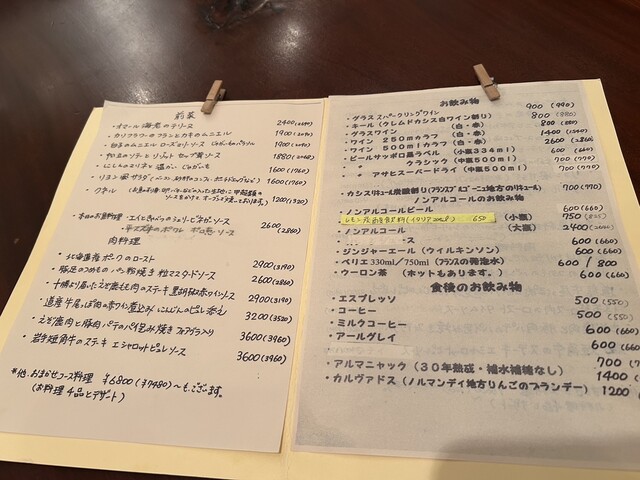 前菜
・オマール海老のテリーヌ 2400
・カリフラワーのフランとカキのムニエル 1900(2090)
1900(2090)
1880(2068)
・にしんのマリネと温かいじゃがいも 1600(1760)
・リヨン風サラダ 1600(1760)
クネル 1200(1320)
・本日のお魚料理 エイときゃべつのシェリービネガーソース 2600
(2860)
肉料理
・北海道産ポークのロースト 2900(3190)
・豚足のつめもの パン粉焼き 粒マスタードソース 2600(2860)
・十勝より届いたえぞ鹿もも肉のステキ 黒胡椒赤ワインソース 2900(3190)
・道産牛ほほ肉の赤ワイン煮込み にんじんのピュレ添え 3200(3520)
・えぞ鹿肉と豚肉パテのパイ包み焼き フォアグラ入り 3600(3960)
・岩手短角牛のステキ エシャロットピュレソース 3600(3960)
*他、おまかせコース料理 ¥6800(¥7480)~もございます。
(お料理4品とデザート)
お飲み物
・グラススパークリングワイン 900 (990)
・キール(クレムドカシス白ワイン割り) 800 (880)
・グラスワイン (白・赤) 800
・ワイン 250mlカラフ (白・赤) 1400
・ワイン 500mlカラフ (白・赤) 2600 (2860)
・ビールサッポロ黒ラベル (小瓶334ml) 600 (660)
〃 クラシック (中瓶500ml) 700 (770)
〃 アサヒスーパードライ (中瓶500ml) 700 (770)
・カシスリキュール炭酸割り(フランスブルゴーニュ地方のリキュール) 700 (770)
ノンアルコールのお飲み物
・ノンアルコールビール 600 (660)
650
(小瓶) 750 (825)
・ノンアルコール (大瓶) 2400
ス 600 (660)
・ジンジャーエール(ウィルキンソン) 600 (660)
・ペリエ 330ml/750ml (フランスの発泡水) 600 / 800
・ウーロン茶 (ホットもあります。) 600 (660)
食後のお飲み物
・エスプレッソ 500 (550)
・コーヒー 500 (550)
・ミルクコーヒー 600 (660)
・アールグレイ 600 (660)
・アルマニャック (30年熟成・補水補糖なし) 700
・カルヴァドス (ノルマンディ地方りんごのブランデー) 1400
1200